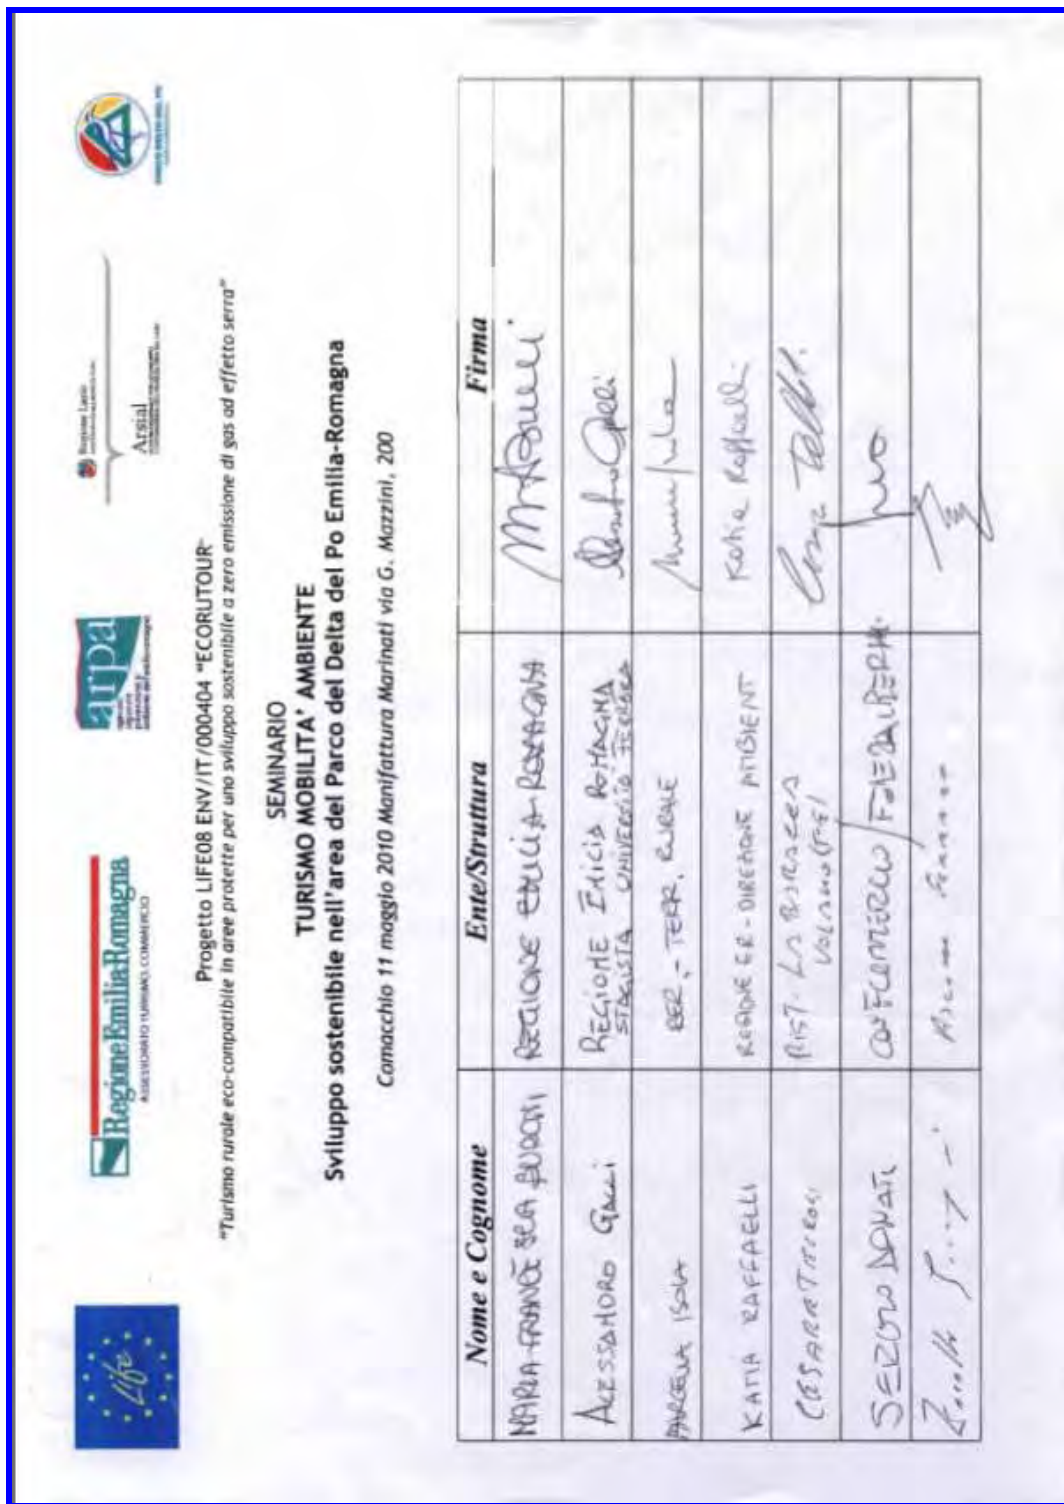 Life
RegioneEmiliaRomagna
ASSESSORATO TURISMO. COMMERCIO
arpa
Regione Lazio
Arsial
Progetto LIFE08 ENV/IT/000404 "ECORUTOUR"
"Turismo rurale eco-compatibile in aree protette per uno sviluppo sostenibile a zero emissione di gas ad effetto serra"
SEMINARIO
TURISMO MOBILITA' AMBIENTE
Sviluppo sostenibile nell'area del Parco del Delta del Po Emilia-Romagna
Comacchio 11 maggio 2010 Manifattura Marinati via G. Mazzini, 200
Nome e Cognome Ente/Struttura Firma
MARIA FRANCESCA REGIONE EMILIA-ROMAGNA
ALESSANDRO GALLI REGIONE EMILIA ROMAGNA
STAGISTA UNIVERSITÀ
MARCELLA ISOLA RER - TERR. RURALE
KATIA RAFFAELLI REGIONE ER - DIREZIONE AMBIENT Katia Raffaelli
RIST.
VOLANO (FE)
SERGIO DONATI CONFCOMMERCIO / FEDERALBERGHI